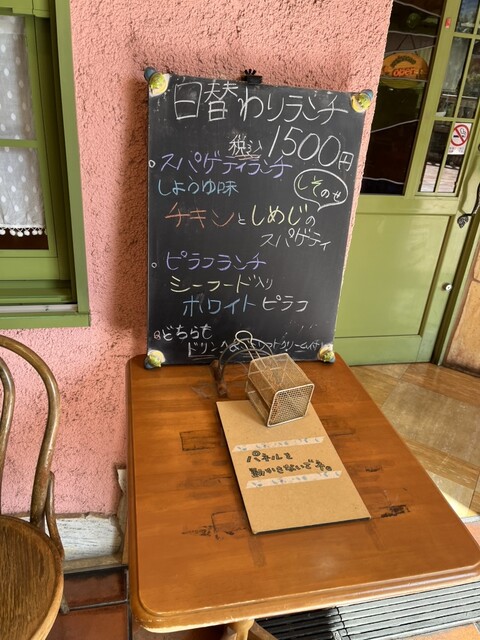 日替わりランチ
税込1500円
○スパゲティランチ
しょうゆ味
しそのせ
チキンとしめじの
スパゲティ
○ピラフランチ
シーフード入り
ホワイトピラフ
◎どちらも
パネルを
動かさないで下さい